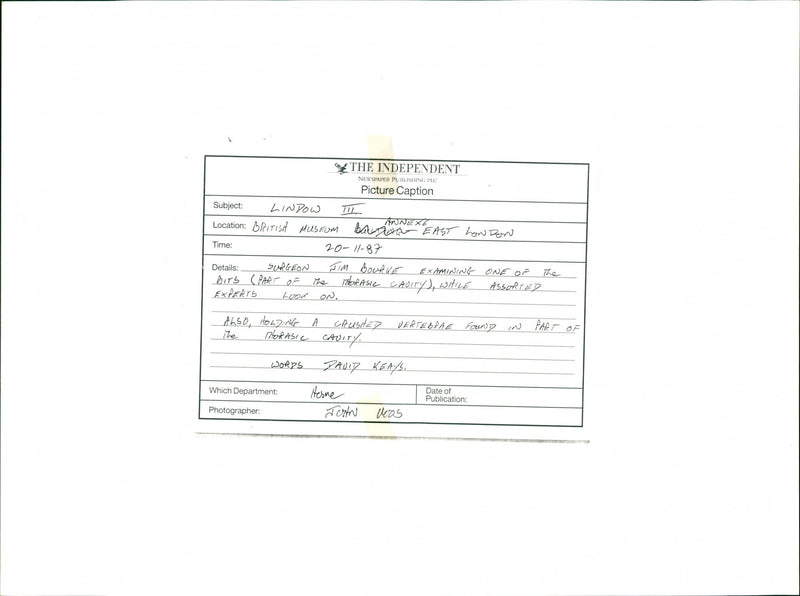 THE INDEPENDENT
NEWSPAPER PUBLISHING PLC
Picture Caption
Subject: LINDOW III
Location: BRITISH MUSEUM ANNEXE EAST LONDON
Time: 20-11-87
Details: SURGEON JIM BOURKE EXAMINING ONE OF The
BITS (PART OF The THORASIC CAVITY), WHILE ASSORTED
EXPERTS LOOK ON.
ALSO, HOLDING A CRUSHED VERTEBRAE FOUND IN PART OF
The THORASIC CAVITY.
WORDS DAVID KEAYS.
Which Department: Home
Date of
Publication:
Photographer: JOHN VOOS